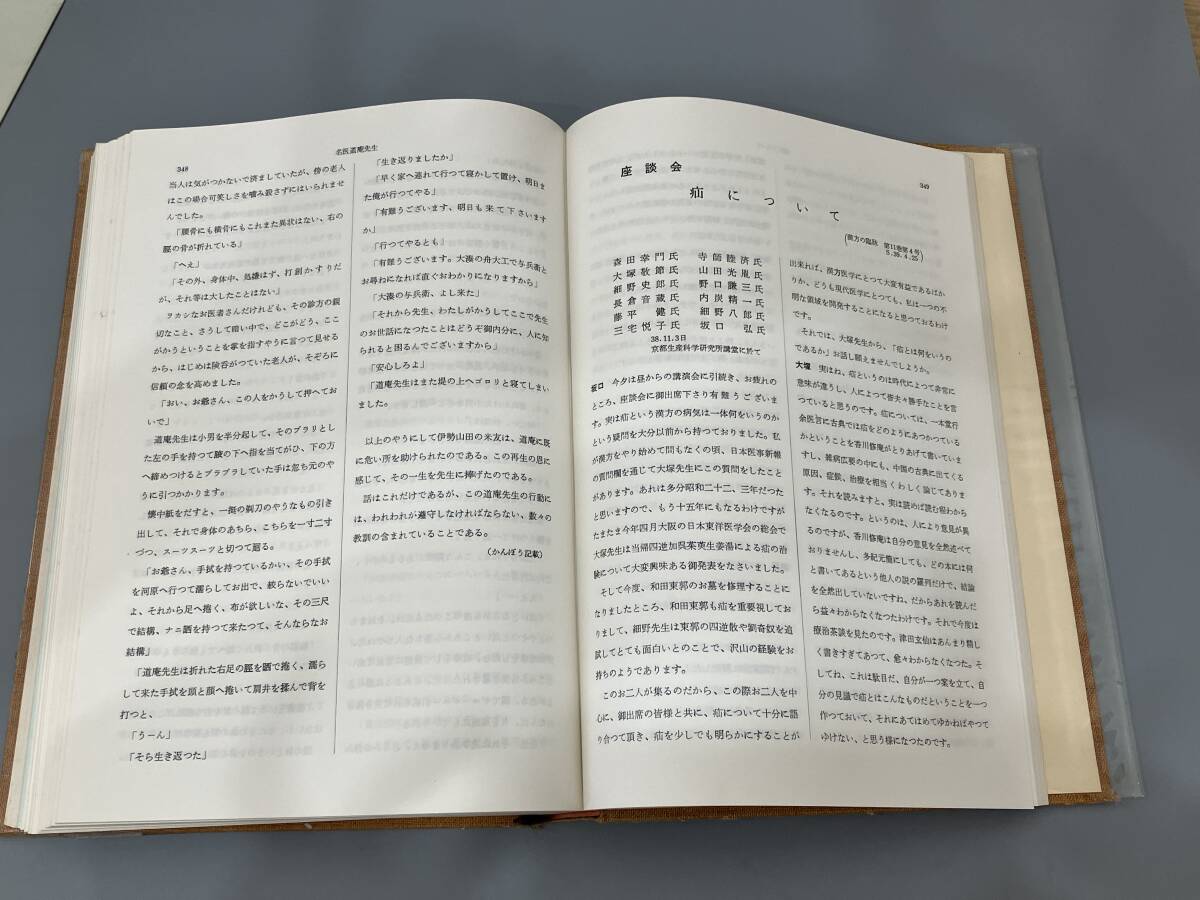 348
名医道庵先生
当人は気がつかないで済ましていたが、傍の老人
はこの場合可笑しさを噛み殺さずにはいられませ
んでした。
「腰骨にも横骨にもこれまた異状はない、右の
脛の骨が折れている」
「へえ」
「その外、身体中、処嫌はず、打創かすりだ
が、それ等は大したことはない」
ヲカシなお医者さんだけれども、その診方の親
切なこと、さうして暗い中で、どこがどう、ここ
がかうということを掌を指すやうに言つて見せる
から、はじめは険呑がつていた老人が、そぞろに
信頼の念を高めました。
「おい、お爺さん、この人をかうして押へてお
いで」
道庵先生は小男を半分起して、そのブラリとし
た左の手を持つて腋の下へ指を当てがひ、下の方
へ締めつけるとブラブラしていた手は忽ち元のや
うに引つかかります。
懐中紙をだすと、一挺の剃刀のやうなもの引き
出して、それで身体のあちら、こちらを一寸二寸
づつ、スーツスーツと切つて廻る。
「お爺さん、手拭を持つているかい、その手拭
を河原へ行つて濡らしてお出で、絞らないでいい
よ、それから足へ捲く、布が欲しいな、その三尺
で結構、ナニ晒を持つて来たつて、そんならなお
結構」
「道庵先生は折れた右足の脛を晒で捲く、濡ら
して来た手拭を頭と顔へ捲いて肩井を揉んで背を
打つと、
「うーん」
「そら生き返つた」
「生き返りましたか」
「早く家へ連れて行つて寝かして置け、明日ま
た俺が行つてやる」
「有難うございます、明日も来て下さいます
か」
「行つてやるとも」
「有難うございます。大湊の舟大工で与兵衛と
お尋ねになれば直ぐおわかりになりますから」
「大湊の与兵衛、よし来た」
「それから先生、わたしがかうしてここで先生
のお世話になつたことはどうぞ御内分に、人に知
られると困るんでございますから」
「安心しろよ」
「道庵先生はまた堤の上へゴロリと寝てしまい
ました。
以上のやうにして伊勢山田の米友は、道庵に既
に危い所を助けられたのである。この再生の恩に
感じて、その一生を先生に捧げたのである。
話はこれだけであるが、この道庵先生の行動に
は、われわれが遵守しなければならない、数々の
教訓の含まれていることである。
（かんぽう記載）
349
座談会
疝について
（漢方の臨牀 第11巻第4号
S.39.4.25）
森田幸門氏 寺師睦済氏
大塚敬節氏 山田光胤氏
細野史郎氏 野口謙三氏
長倉音蔵氏 内炭精一氏
藤平健氏 細野八郎氏
三宅悦子氏 坂口弘氏
38.11.3日
京都生産科学研究所講堂に於て
坂口 今夕は昼からの講演会に引続き、お疲れの
ところ、座談会に御出席下さり有難うございま
す。実は疝という漢方の病気は一体何をいうのか
という疑問を大分以前から持つておりました。私
が漢方をやり始めて間もなくの頃、日本医事新報
の質問欄を通じて大塚先生にこの質問をしたこと
があります。あれは多分昭和二十二、三年だつた
と思いますので、もう十五年にもなるわけですが
たまたま今年四月大阪の日本東洋医学会の総会で
大塚先生は当帰四逆加呉茱萸生姜湯による疝の治
験について大変興味ある御発表をなさいました。
そして今度、和田東郭のお墓を修理することに
なりましたところ、和田東郭も疝を重要視してお
りまして、細野先生は東郭の四逆散や劉寄奴を追
試してとても面白いとのことで、沢山の経験をお
持ちのようであります。
このお二人が集るのだから、この際お二人を中
心に、御出席の皆様と共に、疝について十分に語
り合つて頂き、疝を少しでも明らかにすることが
出来れば、漢方医学にとつて大変有益であるばか
りか、どうも現代医学にとつても、私は一つの不
明な領域を開発することになると思つておるわけ
です。
それでは、大塚先生から、「疝とは何をいうの
であるか」お話し願えませんでしようか。
大塚 実はね、疝というのは時代によつて非常に
意味が違うし、人によつて皆夫々勝手なことを言
つていると思うのです。疝については、一本堂行
余医言に古典では疝をどのようにあつかつている
かということを香川修庵がとりあげて書いていま
すし、雑病広要の中にも、中国の古典に出てくる
原因、症候、治療を相当くわしく論じてありま
す。それを読みますと、実は読めば読む程わから
なくなるのです。というのは、人により意見が異
るのですが、香川修庵は自分の意見を全然述べて
おりませんし、多紀元簡にしても、どの本には何
と書いてあるという他人の説の羅列だけで、結論
を全然出していないですね、だからあれを読んだ
ら益々わからなくなつたわけです。それで今度は
療治茶談を見たのです。津田玄仙はあんまり精し
く書きすぎてあつて、愈々わからなくなつた。そ
してね、これは駄目だ、自分が一つ案を立て、自
分の見識で疝とはこんなものだということを一つ
作つておいて、それにあてはめてゆかねばやつて
ゆけない、と思う様になつたのです。